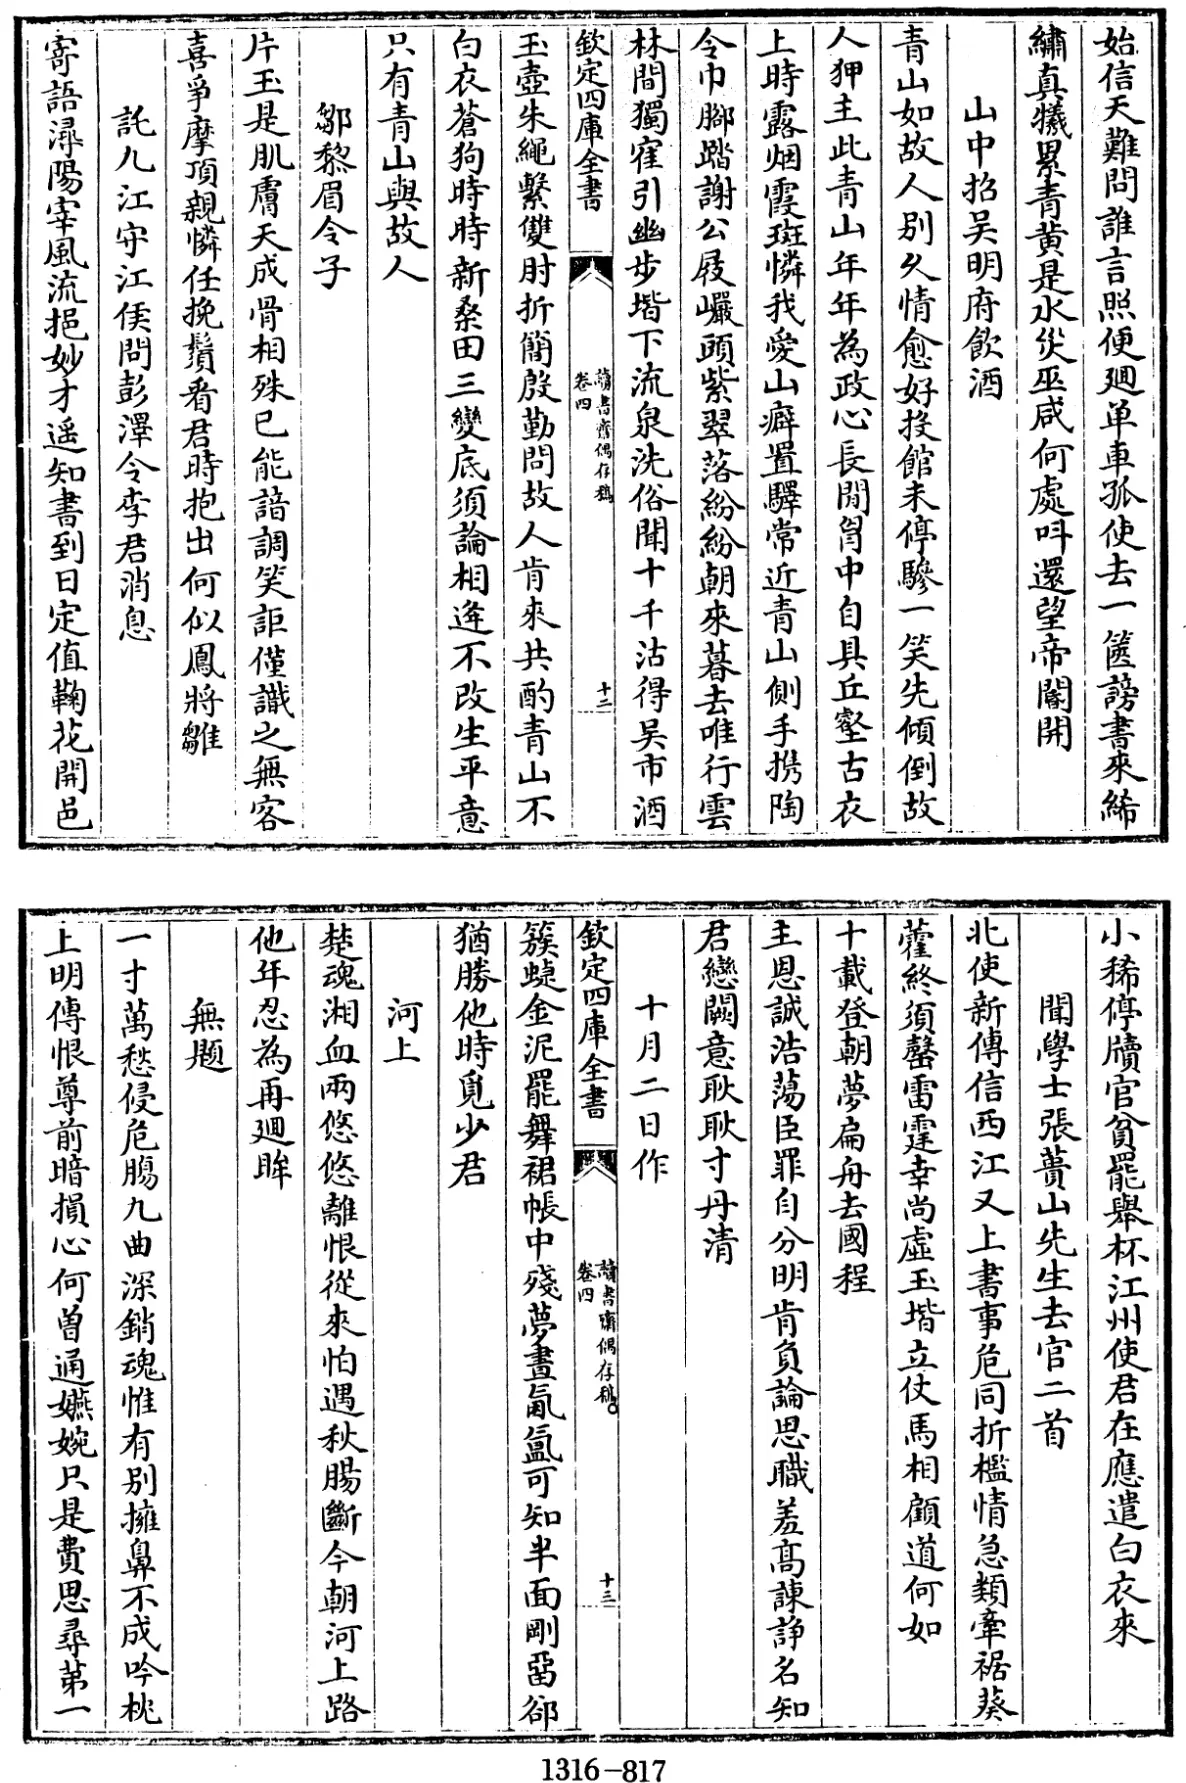 始信天難問誰言照便廻单車孤使去一篋謗書來締
繡真犧累青黄是水災巫咸何處呌還望帝閽開
山中招吴明府飲酒
青山如故人别久情愈好投館未停驂一笑先傾倒故
人狎主此青山年年為政心長閒胷中自具丘壑古衣
上時露烟霞斑憐我愛山癖置驛常近青山側手携陶
令巾腳踏謝公屐巗頭紫翠落紛紛朝來暮去唯行雲
林間獨寉引幽步堦下流泉洗俗聞十千沽得吴市酒
欽定四庫全書
讀書齋偶存稿
卷四
十二
玉壺朱繩繫雙肘折簡殷勤問故人肯來共酌青山不
白衣蒼狗時時新桑田三變底須論相逢不改生平意
只有青山與故人
鄒黎眉令子
片玉是肌膚天成骨相殊已能諳調笑詎僅識之無客
喜爭摩頂親憐任挽鬚看君時抱出何似鳳將雛
託九江守江侯問彭澤令李君消息
寄語潯陽宰風流挹妙才遥知書到日定值鞠花開邑
小稀停牘官貧罷舉杯江州使君在應遣白衣來
聞學士張蕢山先生去官二首
北使新傳信西江又上書事危同折檻情急類牽裾葵
藿終須罄雷霆幸尚虛玉堦立仗馬相顧道何如
十載登朝夢扁舟去國程
主恩誠浩蕩臣罪自分明肯負論思職羞高諫諍名知
君戀闕意耿耿寸丹清
十月二日作
欽定四庫全書
讀書齋偶存稿
卷四
十三
簇蜨金泥罷舞裙帳中殘夢晝氤氲可知半面剛畱郤
猶勝他時覓少君
河上
楚魂湘血兩悠悠離恨從來怕遇秋腸斷今朝河上路
他年忍為再廻眸
無題
一寸萬愁侵危腸九曲深銷魂惟有别擁鼻不成吟枕
上明傳恨尊前暗損心何曾通嬿婉只是費思尋第一
1316-817